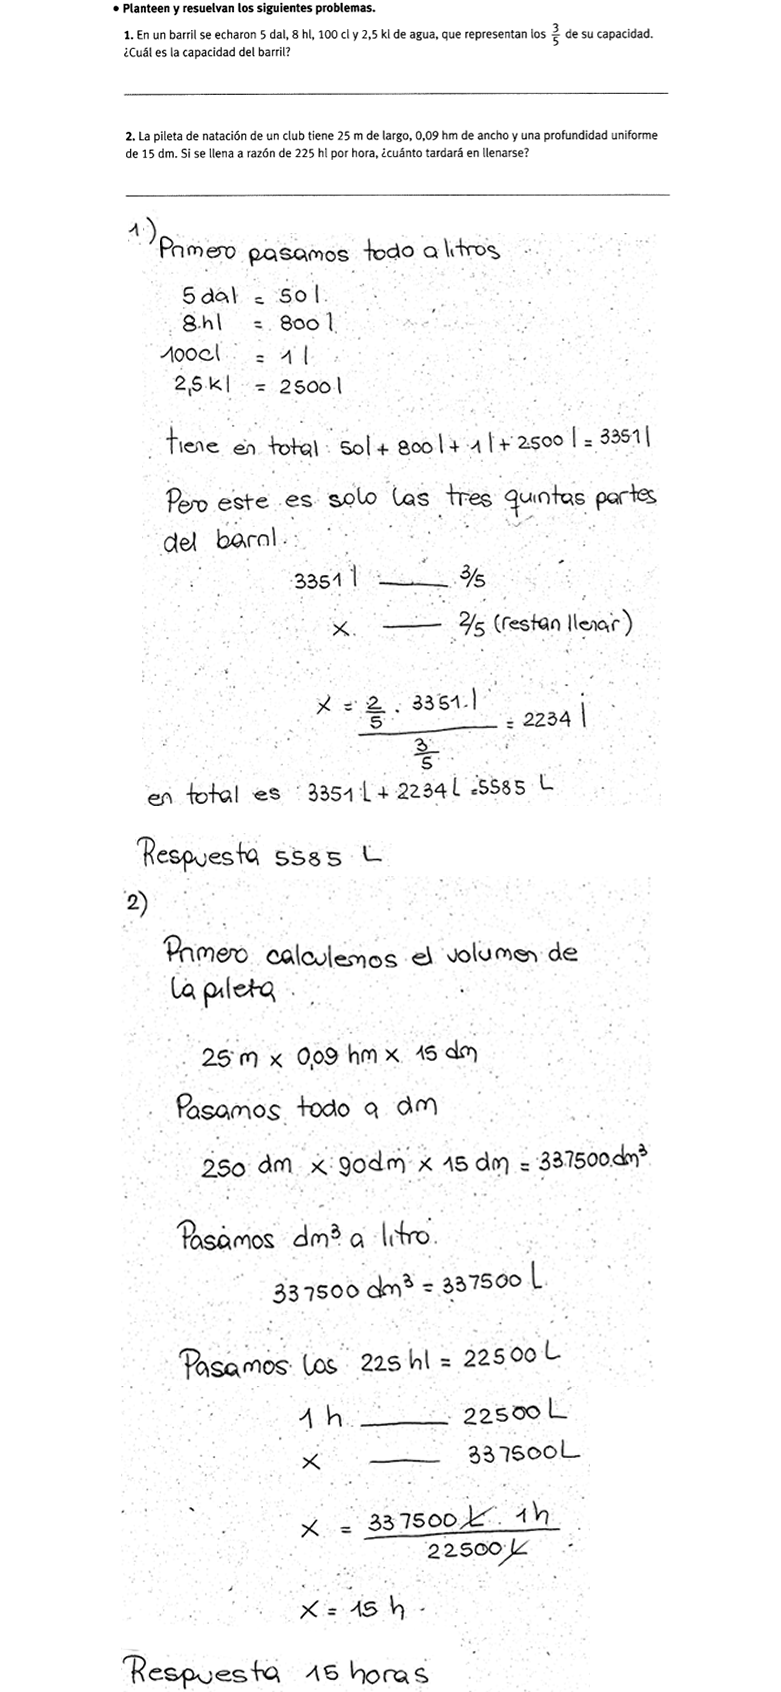 • Planteen y resuelvan los siguientes problemas.
1. En un barril se echaron 5 dal, 8 hl, 100 cl y 2,5 kl de agua, que representan los 3/5 de su capacidad.
¿Cuál es la capacidad del barril?
2. La pileta de natación de un club tiene 25 m de largo, 0,09 hm de ancho y una profundidad uniforme
de 15 dm. Si se llena a razón de 225 hl por hora, ¿cuánto tardará en llenarse?
1.)
Primero pasamos todo a litros
5 dal = 50 l.
8.hl = 800 l
100cl = 1 l
2,5.kl = 2500 l
tiene en total 50l + 800 l + 1 l + 2500 l = 3351 l
Pero este es solo las tres quintas partes
del barril.
3351 l ___ 3/5
x. ___ 2/5 (restan llenar)
x = 2/5 . 3351.l / 3/5 = 2234 l
en total es 3351 L + 2234 L = 5585 L
Respuesta 5585 L
2)
Primero calculemos el volumen de
la pileta.
25 m x 0,09 hm x 15 dm
Pasamos todo a dm
250 dm x 90dm x 15 dm = 337500.dm³
Pasamos dm³ a litro.
337500 dm³ = 337500 L
Pasamos los 225 hl = 22500 L
1 h ___ 22500 L
x ___ 337500L
x = 337500 L . 1h / 22500 L
x = 15 h.
Respuesta 15 horas